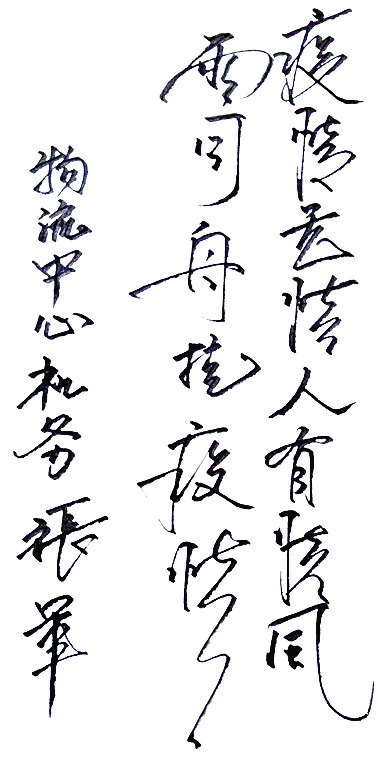 疫情无情人有情风
雨同舟抗疫情
物流中心机务张军